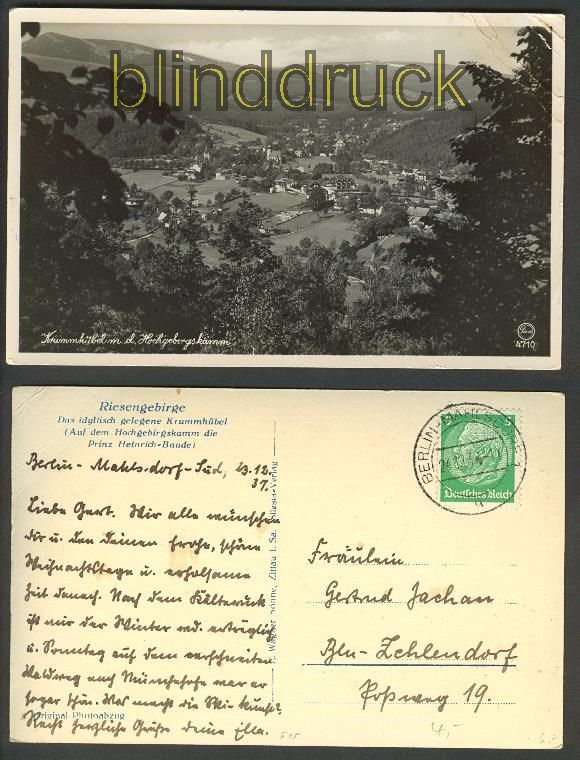 blinddruck
Krummhübel m. d. Hochgebirgskamm
4710
Riesengebirge
Das idyllisch gelegene Krummhübel
(Auf dem Hochgebirgskamm die
Prinz Heinrich-Baude)
Berlin-Mahlsdorf-Süd, 23.12.
37.
Wir alle wünschen
dir u. den Deinen frohe, schöne
Weihnachtstage u. erholsame
Zeit danach. Nach dem
ist mir der Winter
u. Sonntag auf dem verschneiten
Waldweg nach war er
sogar schön. Was macht die
Recht herzliche Grüße deine Ella.
Original Photoabzug
Zittau i. Sa.
5
Deutsches Reich
Fräulein
Gertrud Jachan
Bln-Zehlendorf
19.
4,-
6.-